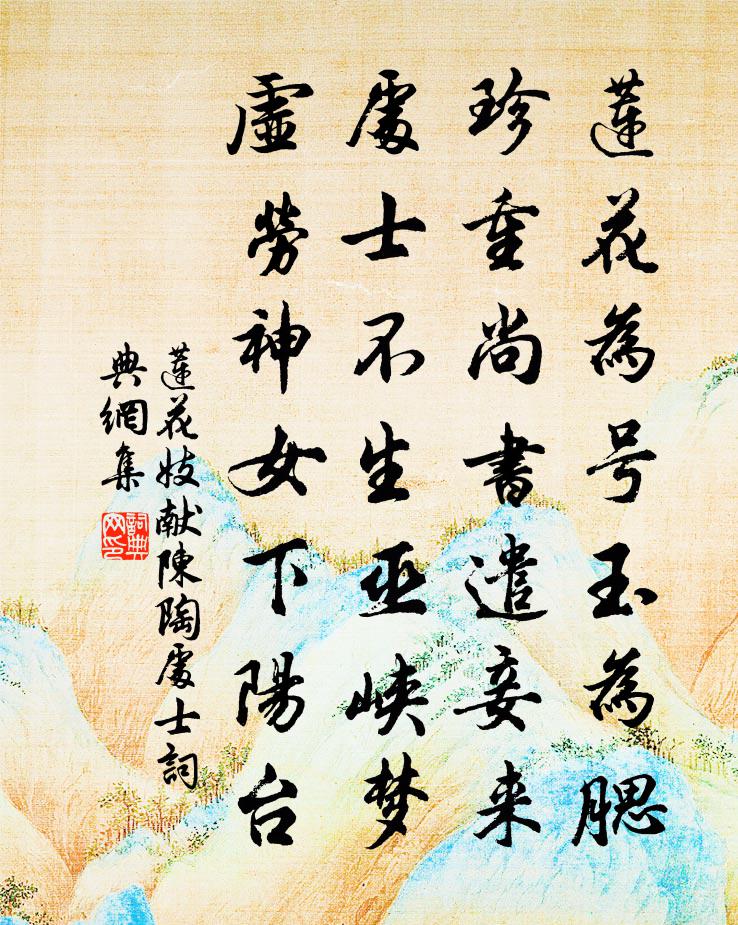 蓮花為号玉為腮
珍重尚書遣妾来
處士不生巫峽梦
虛勞神女下陽台
蓮花妓献陳陶處士詞
典網集
詞典网印